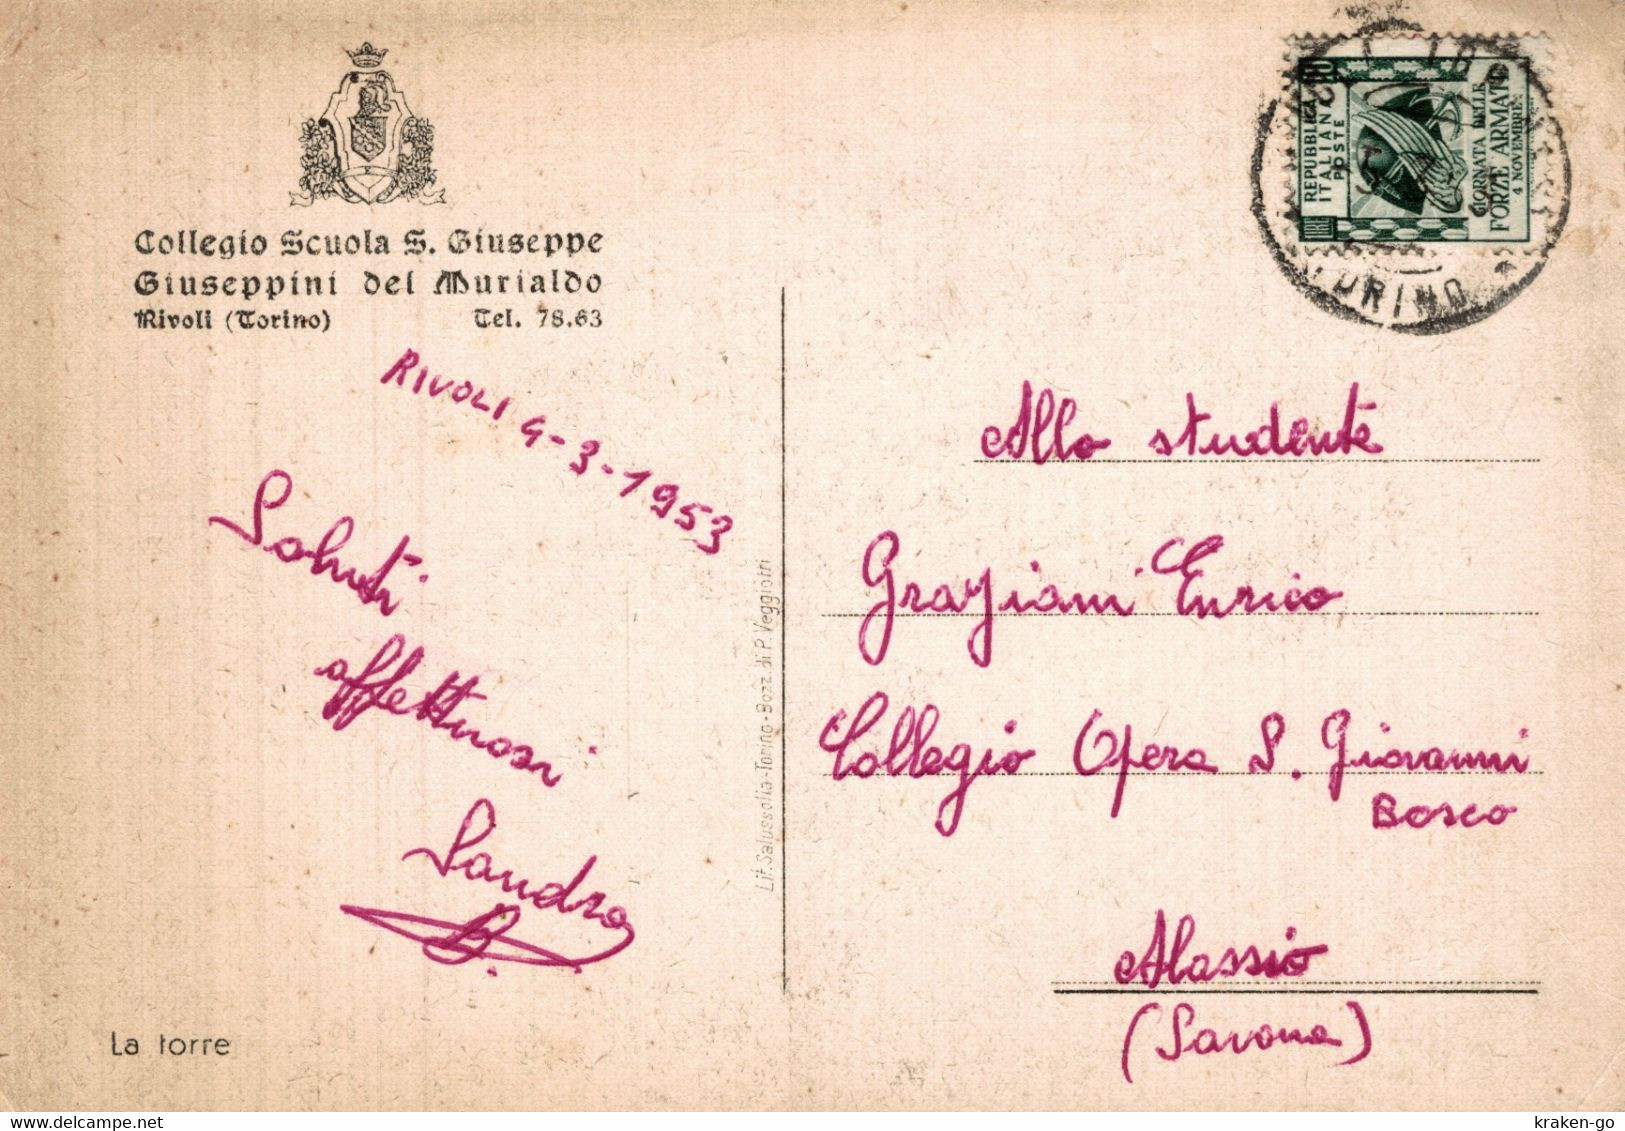 Collegio Scuola S. Giuseppe
Giuseppini del Murialdo
Rivoli (Torino) Tel. 78.63
RIVOLI 4-3-1953
Saluti
affettuosi
Sandro
B.
La torre
Lit. Salussolia-Torino-Bozz. di P. Veggiotti
REPUBBLICA
ITALIANA
POSTE
GIORNATA DELLE
FORZE ARMATE
4 NOVEMBRE
TORINO
Allo studente
Graziani Enrico
Collegio Opera S. Giovanni
Bosco
Alassio
(Savona)
kraken-go